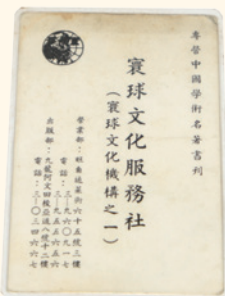 專營中國學術名著書刊
寰球文化服務社
(寰球文化機構之一)
營業部:旺角通菜街六十五號三樓
電話:三-九六〇九一七
三-九五五六五六
出版部:九龍何文田梭亞道八號十二樓
電話:三-〇三四六六七